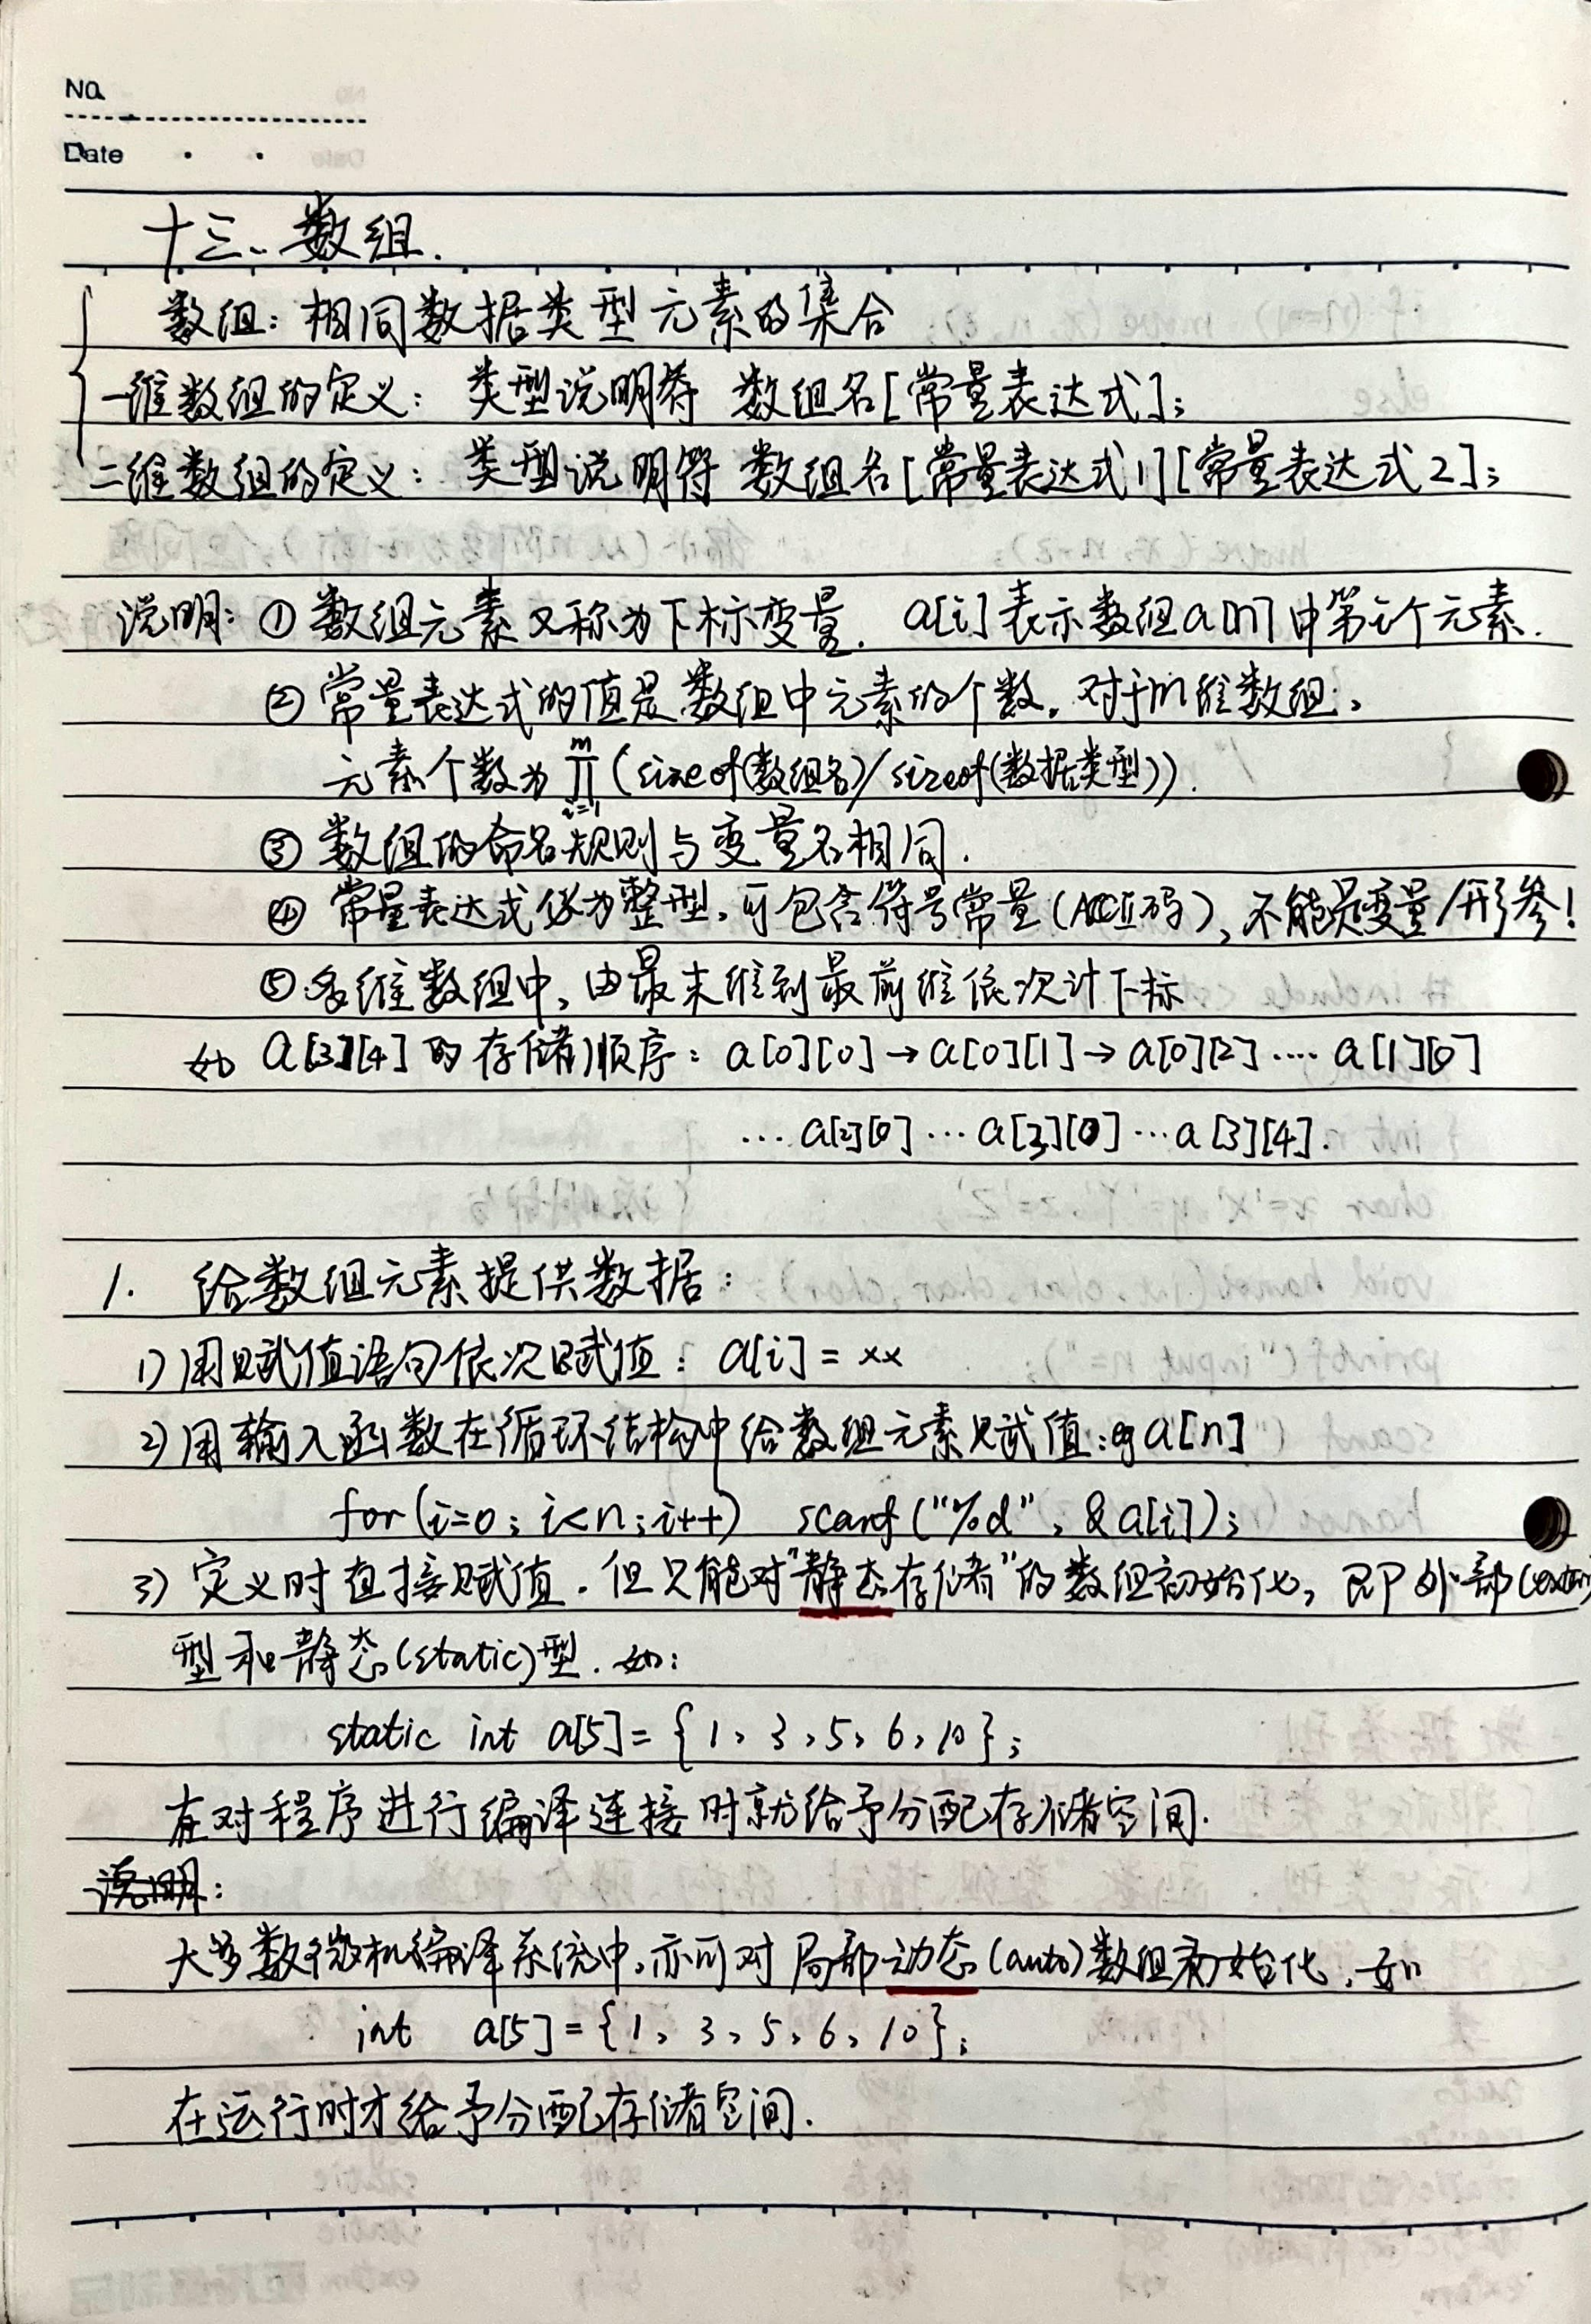 No
Date
十三、数组.
数组：相同数据类型元素的集合
一维数组的定义：类型说明符 数组名[常量表达式];
二维数组的定义：类型说明符 数组名[常量表达式1][常量表达式2];
说明：① 数组元素又称为下标变量. a[i]表示数组a[n]中第i个元素.
② 常量表达式的值是数组中元素的个数. 对于m维数组,
元素个数为 ∏ᵢ₌₁ᵐ (sizeof(数组名)/sizeof(数据类型)).
③ 数组的命名规则与变量名相同.
④ 常量表达式必为整型, 可包含符号常量(ACCII码), 不能是变量/形参!
⑤ 多维数组中, 由最末维到最前维依次计下标
如 a[3][4]的存储顺序：a[0][0]→a[0][1]→a[0][2]····a[1][0]
···a[2][0]···a[3][0]···a[3][4].
1. 给数组元素提供数据：
1) 用赋值语句依次赋值：a[i]=xx
2) 用输入函数在循环结构中给数组元素赋值：eg a[n]
for(i=0; i<n; i++) scanf("%d", &a[i]);
3) 定义时直接赋值. 但只能对"静态存储"的数组初始化, 即外部(extern)
型和静态(static)型. 如：
static int a[5]={1, 3, 5, 6, 10};
在对程序进行编译连接时就给予分配存储空间.
说明：
大多数微机编译系统中, 亦可对局部动态(auto)数组初始化. 如
int a[5]={1, 3, 5, 6, 10};
在运行时才给予分配存储空间.